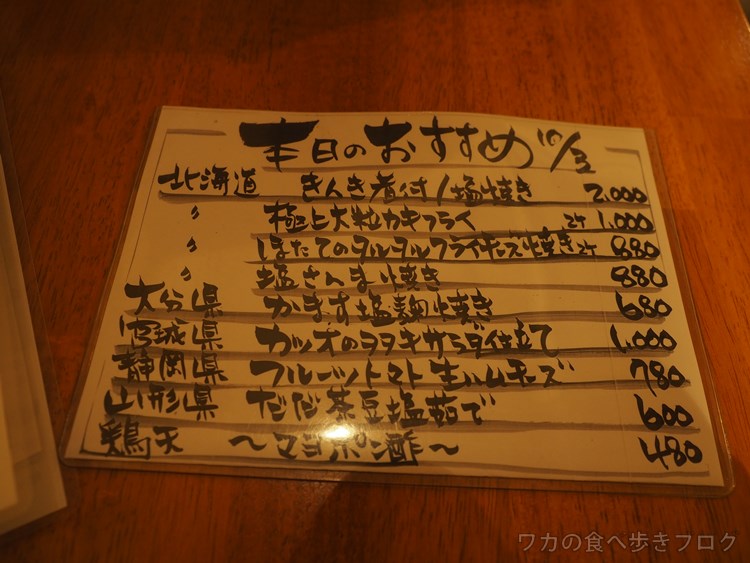 本日のおすすめ 10/3
北海道 きんき煮付/塩焼き 2,000
〃 極上大粒カキフライ 2ケ 1,000
〃 ほたてのタルタルフライチーズ焼き 2ケ 880
〃 塩さんま焼き 880
大分県 かます塩麹焼き 680
宮城県 カツオのタタキサラダ仕立て 1,000
静岡県 フルーツトマト生ハムチーズ 780
山形県 だだ茶豆塩茹で 600
鶏天 〜マヨポン酢〜 480
ワカの食べ歩きブログ